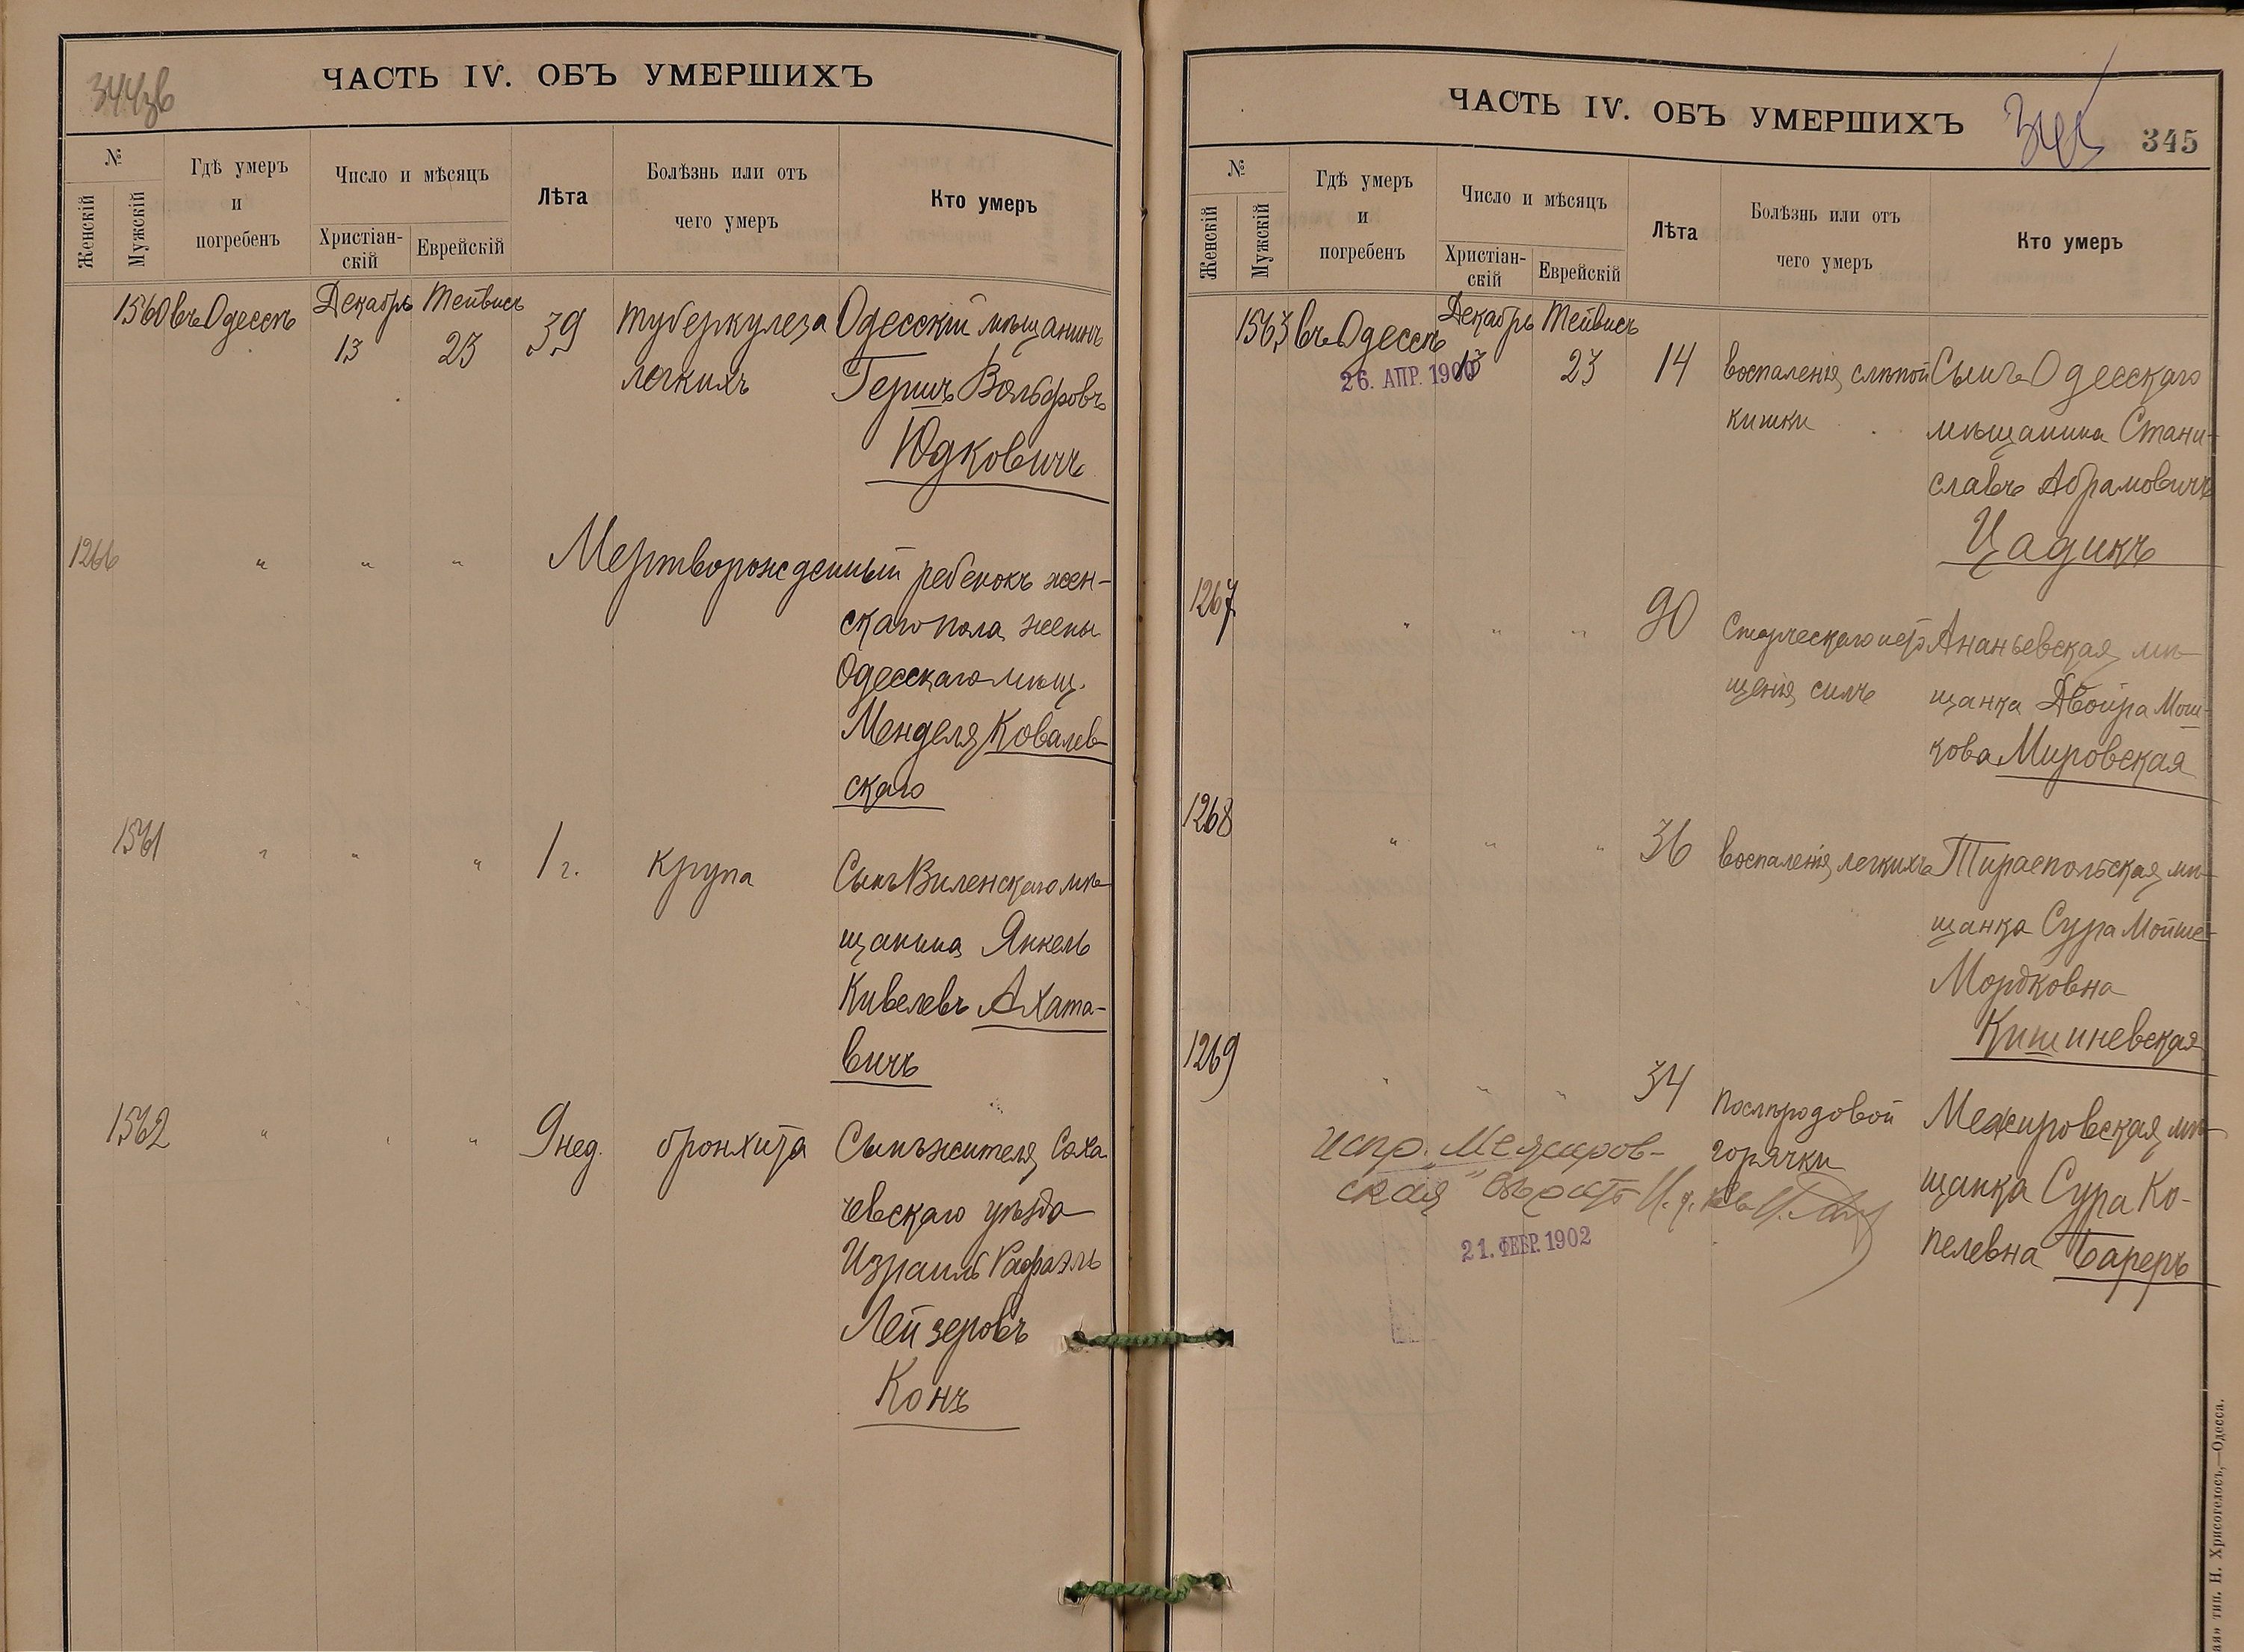 344 зв
ЧАСТЬ IV. ОБЪ УМЕРШИХЪ
№
Женскій
Мужскій
Гдѣ умеръ
и
погребенъ
Число и мѣсяцъ
Христіан-
скій
Еврейскій
Лѣта
Болѣзнь или отъ
чего умеръ
Кто умеръ
1560 въ Одессѣ Декабрь 13 Тейвисъ 23 39 туберкулеза Одесскій мѣщанинъ
легкихъ Гершъ Вольфовъ
Юдковичъ
1266 " " " Мертворожденный ребенокъ жен-
скаго пола жены
Одесскаго мѣщ.
Менделя Ковалев-
скаго
1561 " " " 1 г. крупа Сынъ Виленскаго мѣ-
щанина Янкель
Кивелевъ Ахата-
вичъ
1562 " " " 9 нед. бронхита Сынъ жителя Соха-
чевскаго уѣзда
Израиль Рафаэль
Лейзеровъ
Конъ
ЧАСТЬ IV. ОБЪ УМЕРШИХЪ
345
345
№
Женскій
Мужскій
Гдѣ умеръ
и
погребенъ
Число и мѣсяцъ
Христіан-
скій
Еврейскій
Лѣта
Болѣзнь или отъ
чего умеръ
Кто умеръ
1563 въ Одессѣ Декабрь 13 Тейвисъ 23 14 воспаленія слѣпой Сынъ Одесскаго
26. АПР. 1900
кишки мѣщанина Стани-
славъ Абрамовичъ
Цадикъ
1267 " " " 90 Старческаго исто Ананьевская мѣ-
щенія силъ щанка Двойра Мош-
кова Мировская
1268 " " " 36 воспаленія легкихъ Тираспольская мѣ-
щанка Сура Мойше-
Мордковна
Кишиневская
1269 " " " 34 послѣродовой Межировская мѣ-
горячки щанка Сура Ко-
пелевна Бареръ
Испр. "Межиров-
ская" вѣрить
21. ФЕВР. 1902
тип. Н. Хрисогелосъ,—Одесса.